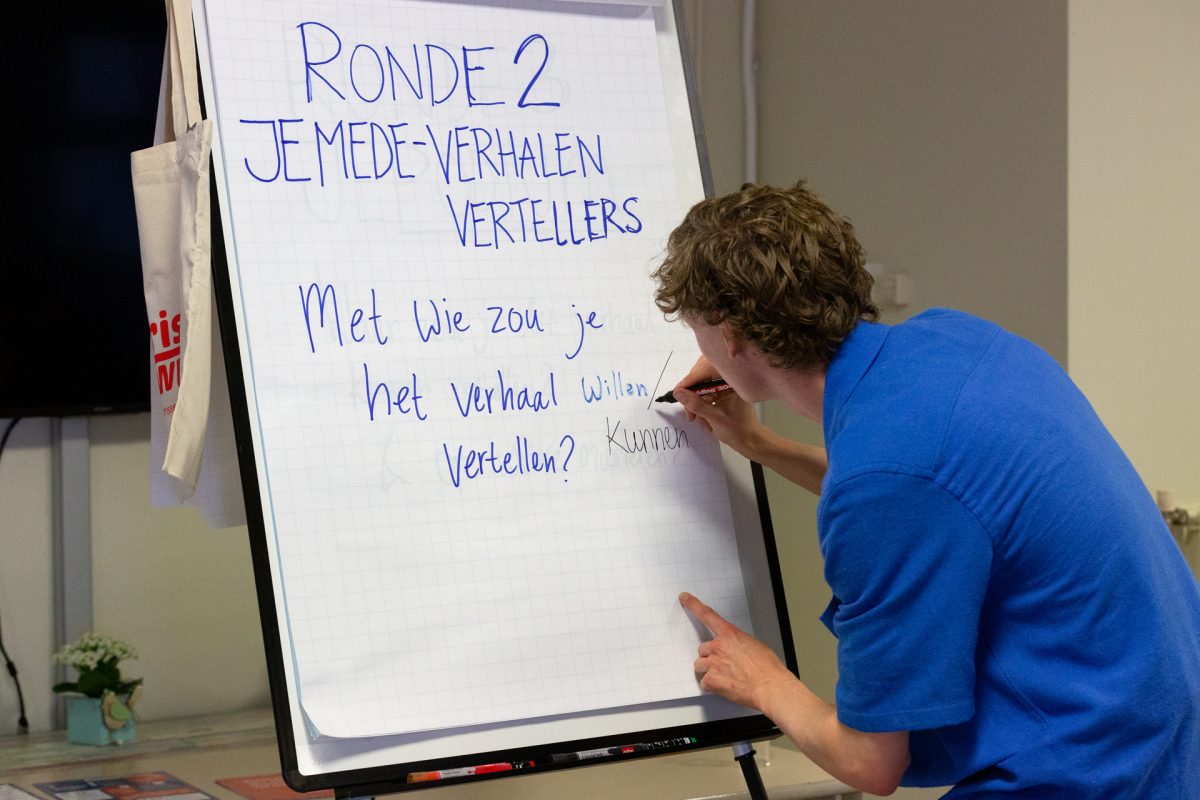 RONDE 2
JE MEDE-VERHALEN
VERTELLERS
Met wie zou je
het verhaal willen/
kunnen
vertellen?
edding